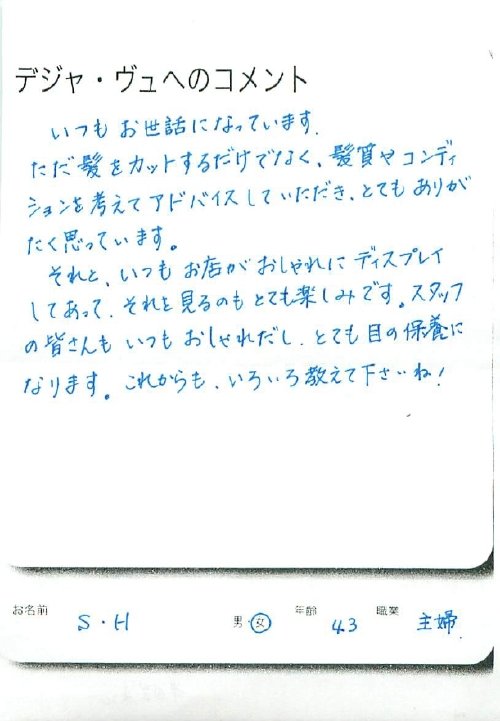 デジャ・ヴュへのコメント
いつも お世話になっています.
ただ髪をカットするだけでなく、髪質やコンディ
ションを考えてアドバイスしていただき、とてもありが
たく思っています。
それと、いつも お店が おしゃれに ディスプレイ
してあって、それを見るのも とても楽しみです。スタッフ
の皆さんも いつも おしゃれだし、とても目の保養に
なります。これからも、いろいろ教えて下さいね!
お名前 S・H 男・女 年齢 43 職業 主婦